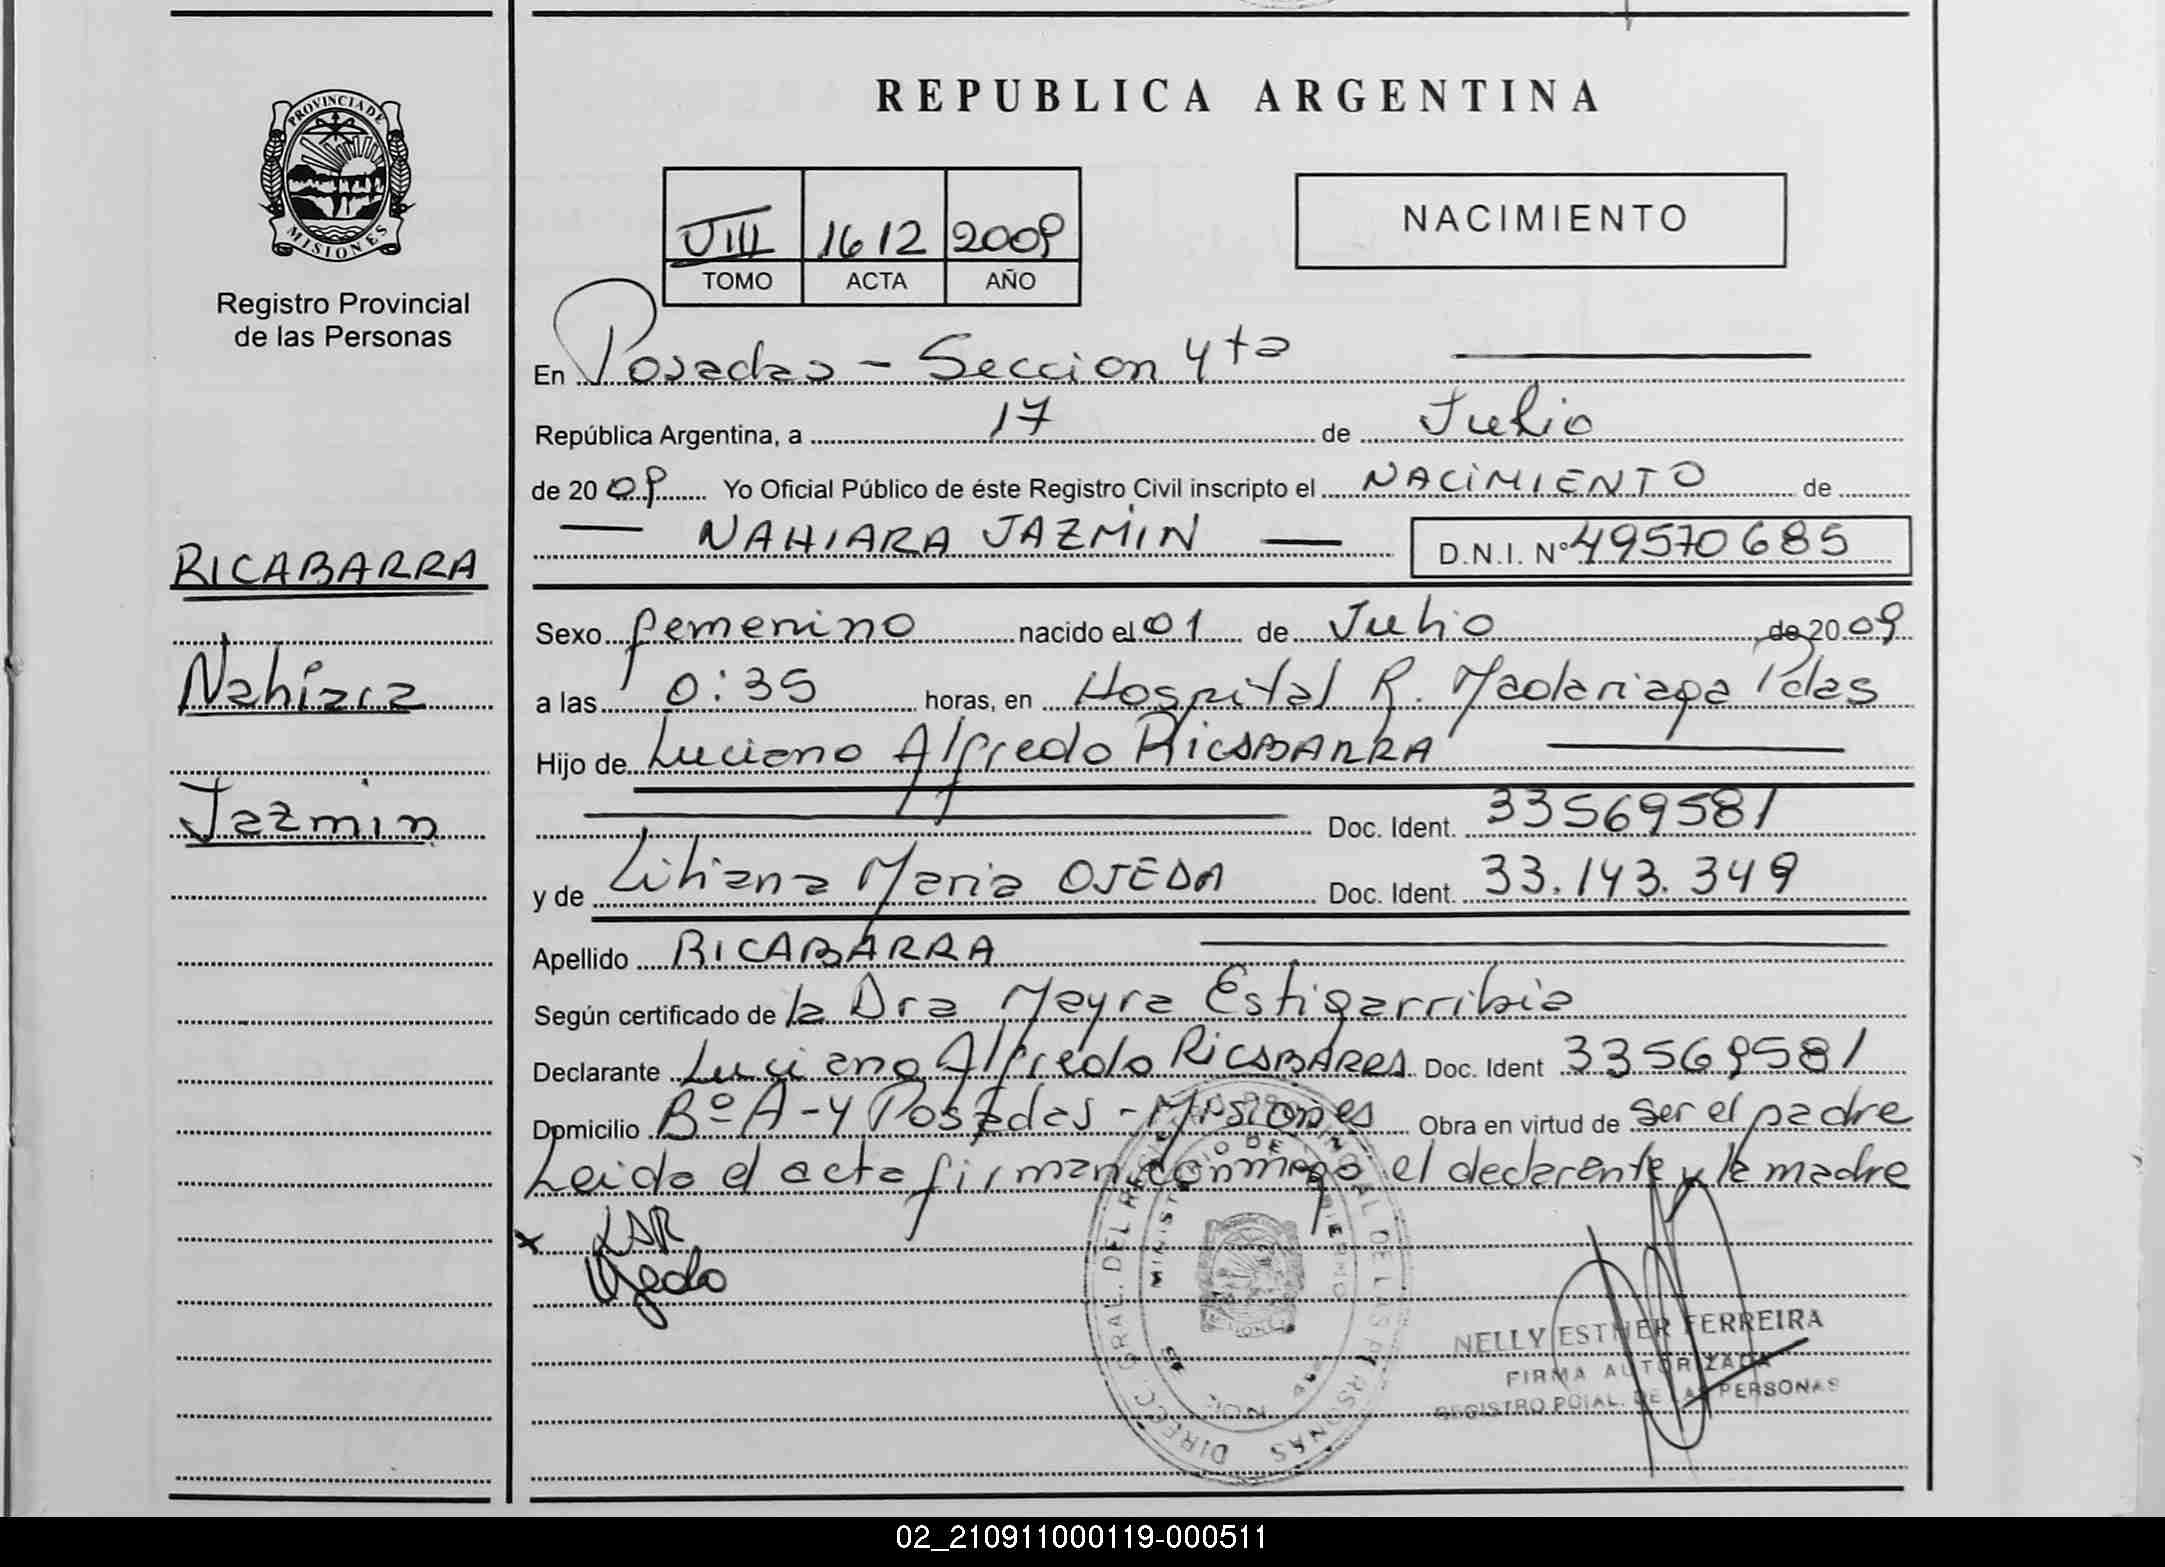 REPUBLICA ARGENTINA
PROVINCIA DE MISIONES
Registro Provincial
de las Personas
VIII 1612 2009
TOMO ACTA AÑO
NACIMIENTO
En Posadas - Seccion 4ta
República Argentina, a 17 de Julio
de 2009 Yo Oficial Público de éste Registro Civil inscripto el NACIMIENTO de
NAHIARA JAZMIN D.N.I. N° 49570685
RICABARRA
Nahiara
Jazmin
Sexo femenino nacido el 01 de Julio de 2009
a las 0:35 horas, en Hospital R. Madariaga Pdas
Hijo de Luciano Alfredo RICABARRA
Doc. Ident. 33569581
y de Liliana Maria OJEDA Doc. Ident. 33.143.349
Apellido RICABARRA
Según certificado de la Dra Mayra Estigarribia
Declarante Luciano Alfredo RICABARRA Doc. Ident 33569581
Domicilio Bº A-4 Posadas - Misiones Obra en virtud de ser el padre
Leida el acta firman conmigo el declarante y la madre
x LAR
Ojeda
DIRECC. GRAL. DEL REGISTRO PROVINCIAL DE LAS PERSONAS
NELLY ESTHER FERREIRA
FIRMA AUTORIZADA
REGISTRO PCIAL. DE LAS PERSONAS
02_210911000119-000511